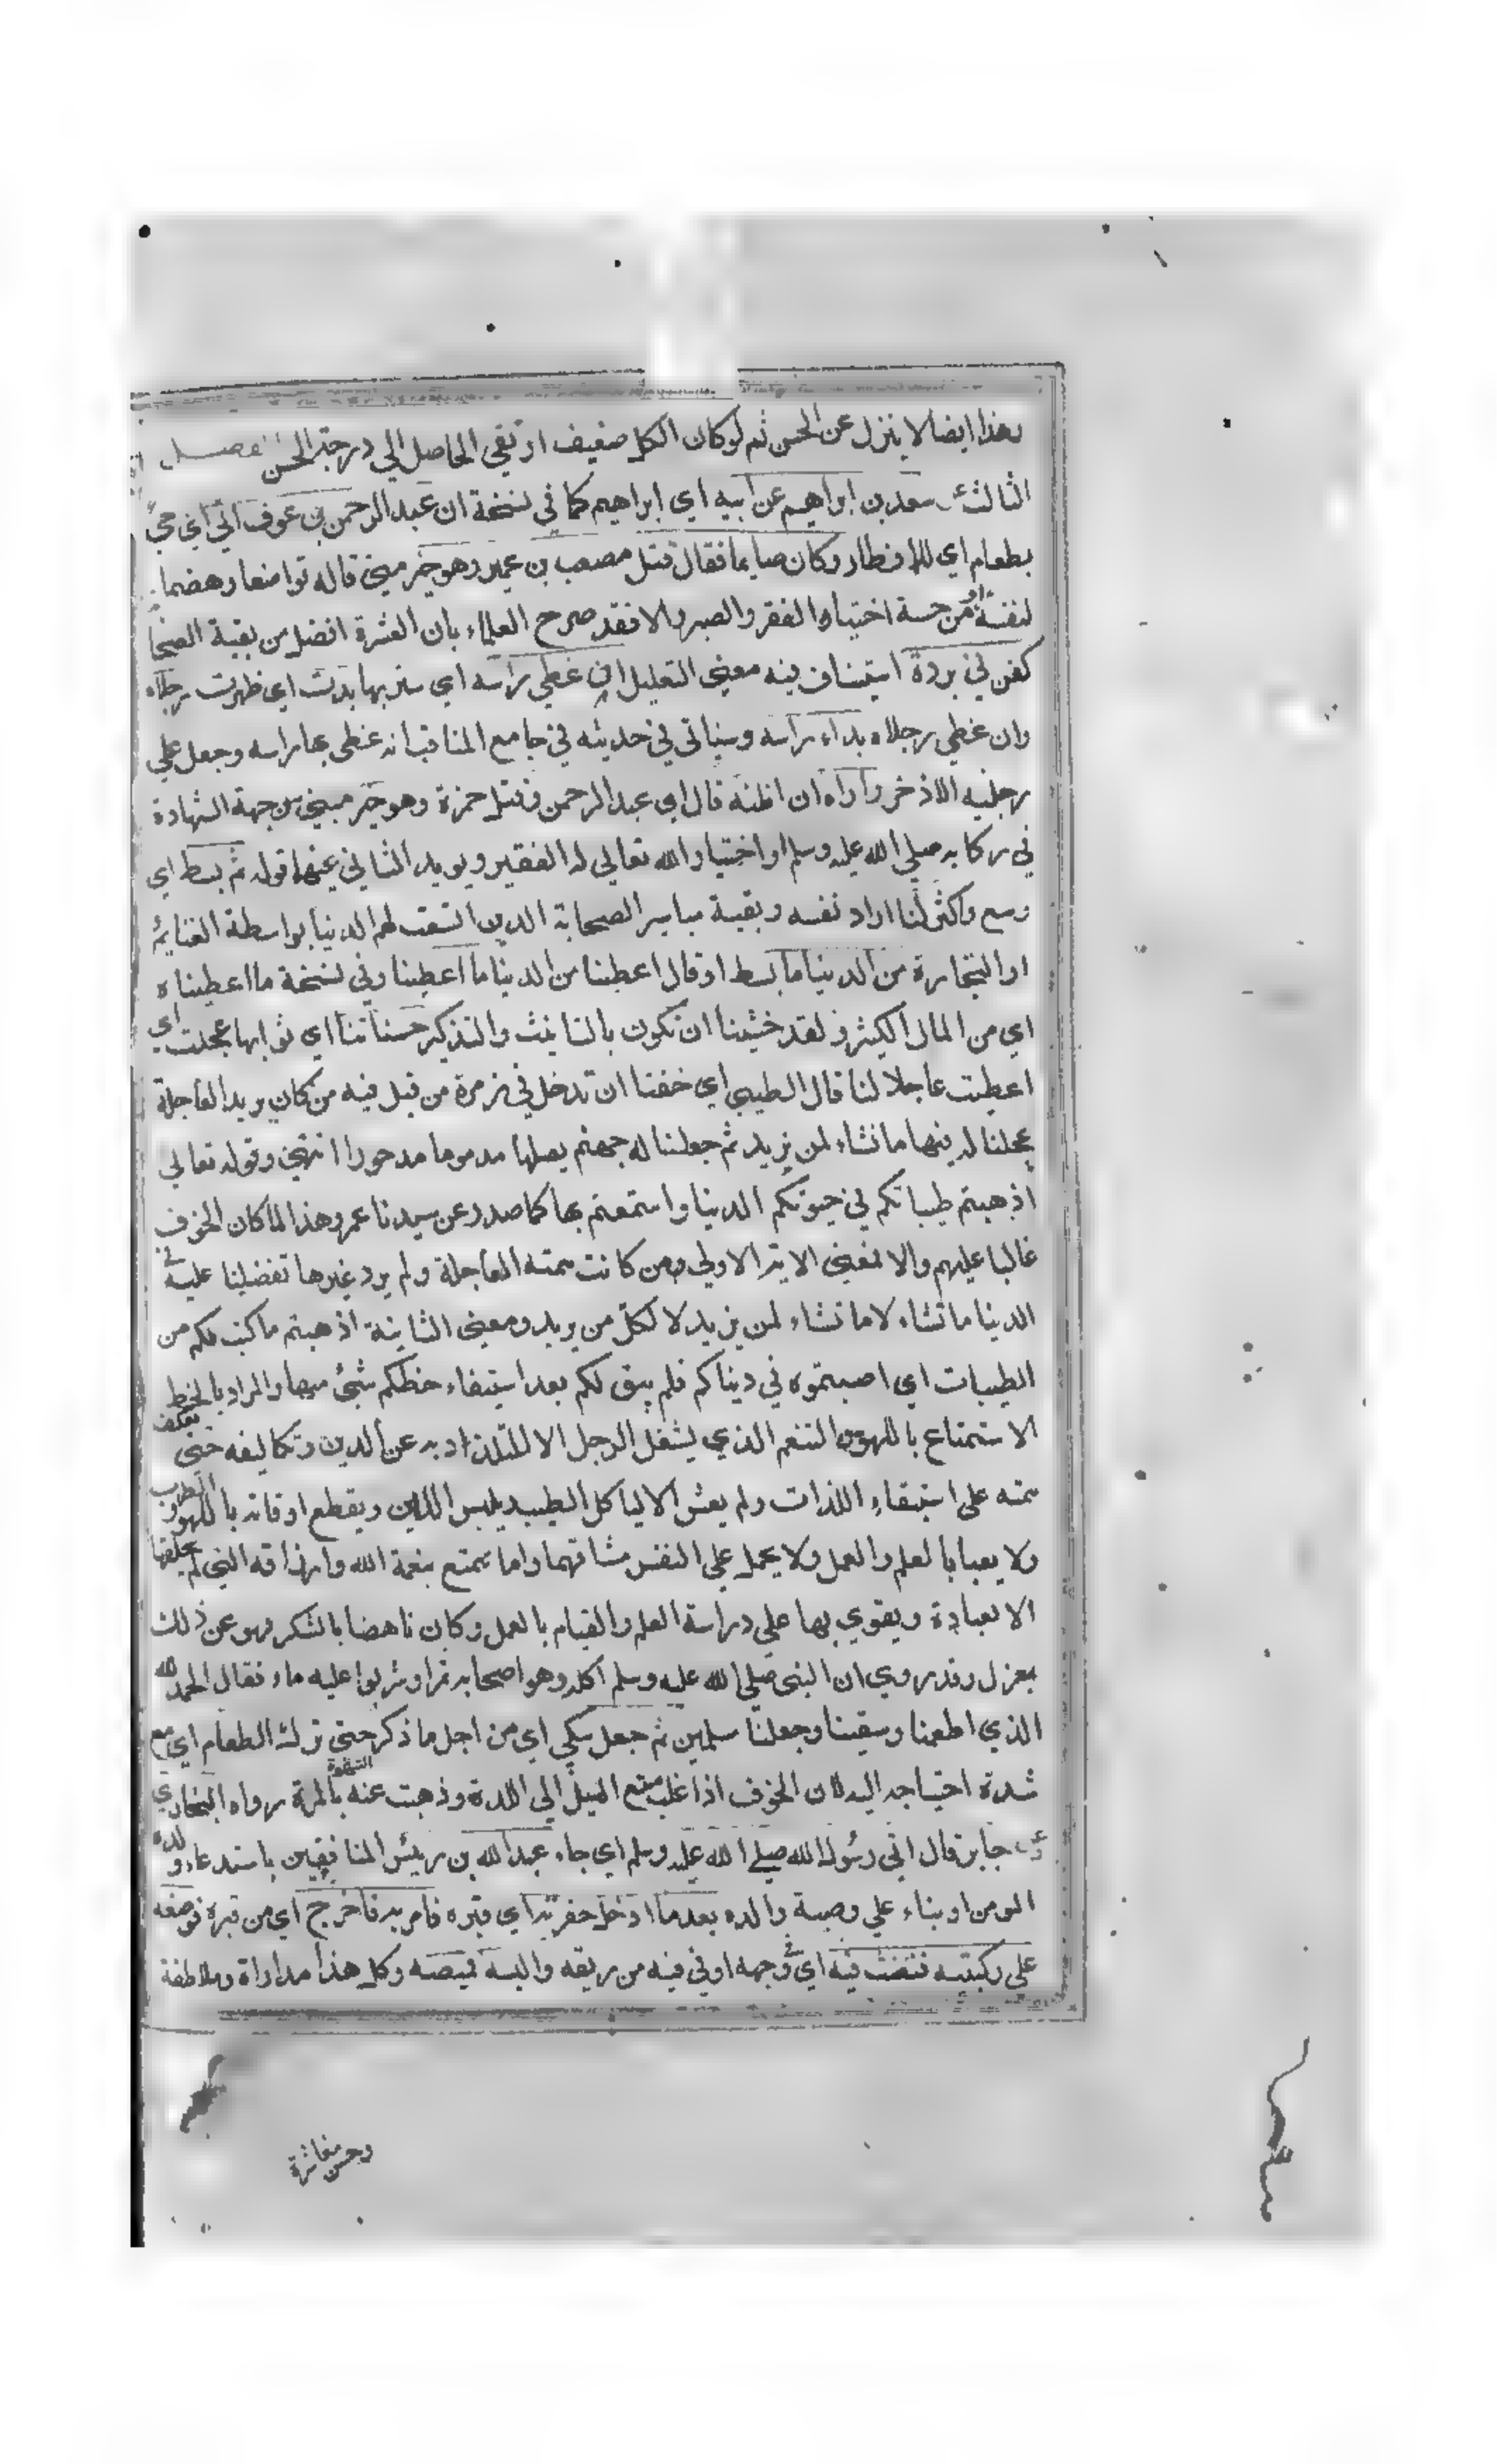 وهذا ايضا لا ينزل عن الحسن ثم لو كان الكل ضعيف ارتقي الحاصل الي درجة الحسن الفصل
الثالث عن سعد بن ابراهيم عن ابيه اي ابراهيم كما في نسخة ان عبد الرحمن بن عوف اتي اي جيء
بطعام اي للافطار وكان صايما فقال قتل مصعب بن عمير وهو خير مني قاله تواضعا وهضما
لنفسه او من حسة اختيار الفقر والصبر والا فقد صرح العلماء بان العشرة افضل من بقية الصحابة
كفن في بردة استيناف فيه معني التعليل ان غطي راسه اي ستر بها بدت اي ظهرت رجلاه
وان غطي رجلاه بداء راسه وسياتي في حديثه في جامع المناقب انه غطي بها راسه وجعل علي
رجليه الاذخر واراه ان اظنه قال اي عبد الرحمن وقتل حمزة وهو خير مبني من جهة الشهادة
في ركابه صلي الله عليه وسلم او اختيار الله تعالي له الفقير ويويد الثاني قوله ثم بسط اي
وسع واكثر لنا اراد نفسه وبقية مياسير الصحابة الذين اتسعت لهم الدنيا بواسطة الغنايم
او التجارة من الدنيا ما بسط او قال اعطينا من الدنيا ما اعطينا وفي نسخة ما اعطيناه
اي من المال الكثير ولقد خشينا ان تكون بالتانيث والتذكير حسناتنا اي ثوابها عجلت اي
اعطيت عاجلا لنا قال الطيبي اي خفنا ان تدخل في زمرة من قيل فيه من كان يريد العاجلة
عجلنا له فيها ما نشاء لمن نريد ثم جعلنا له جهنم يصلها مدموما مدحورا انتهي وقوله تعالي
اذهبتم طيباتكم في حيوتكم الدنيا واستمعتم بها كما صدر عن سيدنا عمر وهذا لما كان الخوف
غالبا عليهم والا لمعني الاية الاولي ومن كانت همته العاجلة ولم يرد غيرها تفضلنا عليه في
الدنيا ما نشاء لا ما تشاء لمن نريد لا لكل من يريد ومعني الثانية اذهبتم ما كتب لكم من
الطيبات اي اصبتموه في ديناكم فلم يبق لكم بعد استيفاء حظكم شيئ منها والمراد بالحظ
الاستمتاع باللهو والتنعم الذي يشغل الرجل الالتلذاذ به عن الدين وتكاليفه حتي يعكف
همته علي استيفاء اللذات ولم يعش الا لياكل الطيب ويلبس اللين ويقطع اوقاته باللهو والطرب
ولا يعبا بالعلم والعمل ولا يحمل علي النفس مشاقهما واما تمتع بنعمة الله وارزاقه التي لم يخلقها
الا لعبادة ويقوي بها علي دراسة العلم والقيام بالعمل وكان ناهضا بالشكر فهو عن ذلك
بمعزل وقد روي ان النبي صلي الله عليه وسلم اكل وهو اصحابه تمرا وشربوا عليه ماء فقال الحمد لله
الذي اطعمنا وسقينا وجعلنا مسلمين ثم جعل يبكي اي من اجل ما ذكر حتي ترك الطعام اي مع
شدة احتياجه اليه لان الخوف اذا غلب منع الميل الي اللدة وذهبت عنه الشهوة بالمرة رواه البخاري
وعن جابر قال اتي رسول الله صلي الله عليه وسلم اي جاء عبد الله بن رييس المنافقين باستدعاء ولده
المومن او بناء علي وصية والده بعد ما ادخل حفرته اي قبره فامر به فاخرج اي من قبره فوضعه
علي ركبتيه فنفث فيه اي في وجهه او في فيه من ريقه والبسه قميصه وكل هذا مداراة وملاطفة
وحسن معاشرة